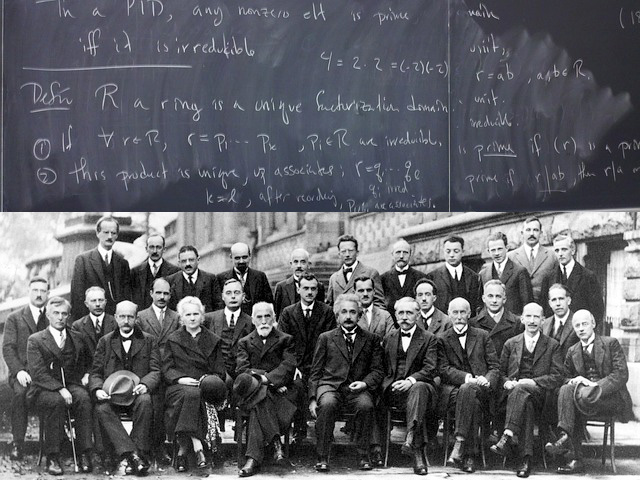 In a PID, any nonzero elt is prime
iff it is irreducible
4 = 2·2 = (-2)(-2)
Defn R a ring is a unique factorization domain:
① If ∀ r∈R, r = p₁ ... pₖ , pᵢ∈R are irreducible
② this product is unique, up associates: r = q₁ ... qℓ
k=ℓ, after reording,
are associates.
unit,
r = ab, a,b∈R,
unit.
irreducible.
is prime if (r) is a prim
prime if r|ab, then r|a or